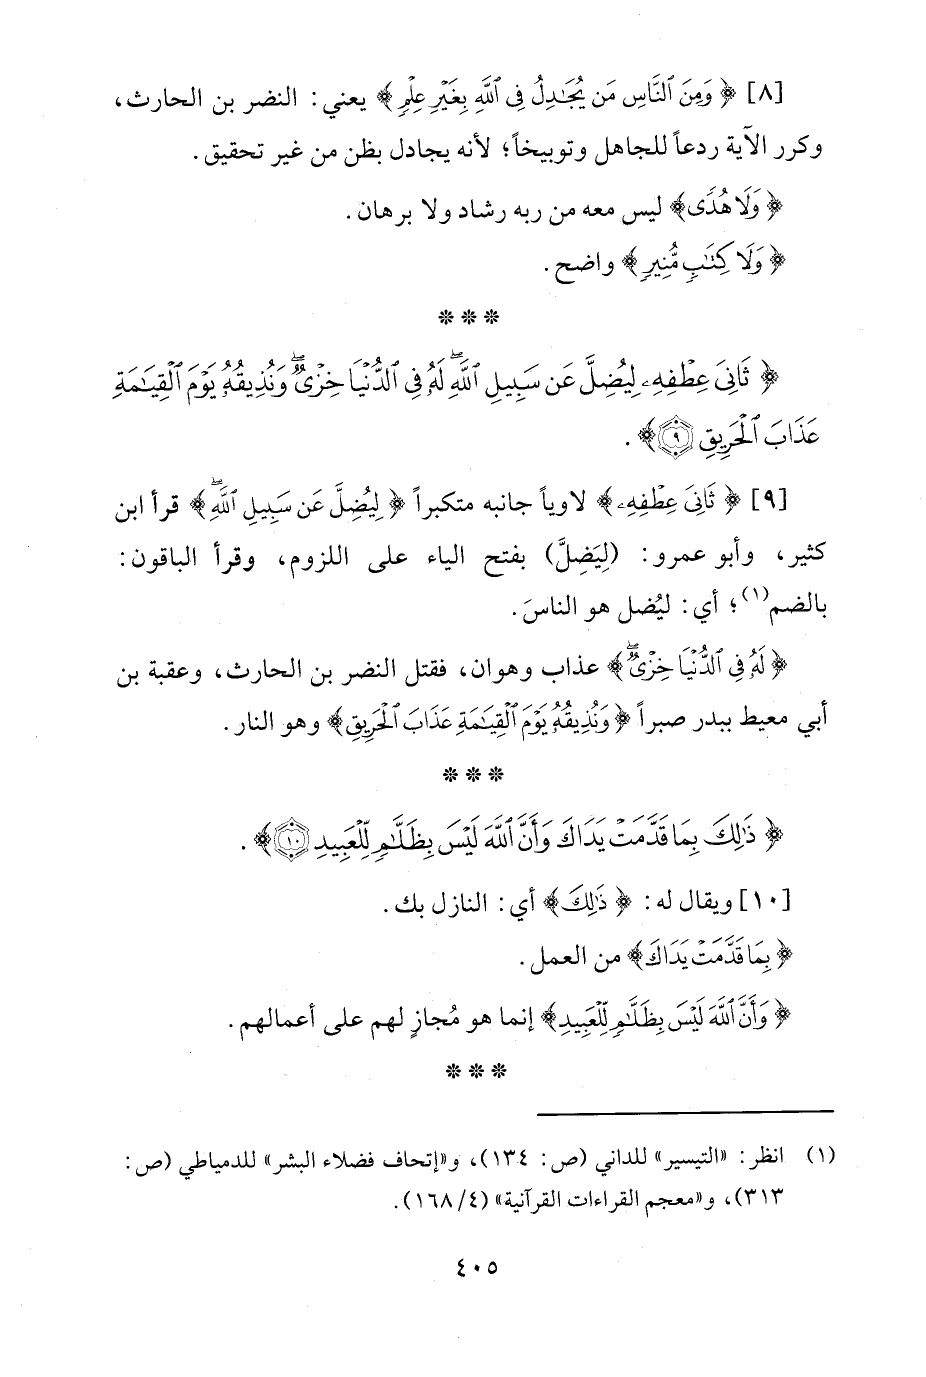 [٨] ﴿ وَمِنَ ٱلنَّاسِ مَن يُجَٰدِلُ فِى ٱللَّهِ بِغَيْرِ عِلْمٍ ﴾ يعني: النضر بن الحارث،
وكرر الآية ردعاً للجاهل وتوبيخاً؛ لأنه يجادل بظن من غير تحقيق.
﴿ وَلَا هُدًى ﴾ ليس معه من ربه رشاد ولا برهان.
﴿ وَلَا كِتَٰبٍ مُّنِيرٍ ﴾ واضح.
* * *
﴿ ثَانِىَ عِطْفِهِۦ لِيُضِلَّ عَن سَبِيلِ ٱللَّهِۖ لَهُۥ فِى ٱلدُّنْيَا خِزْىٌۖ وَنُذِيقُهُۥ يَوْمَ ٱلْقِيَٰمَةِ
عَذَابَ ٱلْحَرِيقِ ٩ ﴾.
[٩] ﴿ ثَانِىَ عِطْفِهِۦ ﴾ لاوياً جانبه متكبراً ﴿ لِيُضِلَّ عَن سَبِيلِ ٱللَّهِۖ ﴾ قرأ ابن
كثير، وأبو عمرو: (لِيَضِلَّ) بفتح الياء على اللزوم، وقرأ الباقون:
بالضم(١)؛ أي: ليُضل هو الناسَ.
﴿ لَهُۥ فِى ٱلدُّنْيَا خِزْىٌۖ ﴾ عذاب وهوان، فقتل النضر بن الحارث، وعقبة بن
أبي معيط ببدر صبراً ﴿ وَنُذِيقُهُۥ يَوْمَ ٱلْقِيَٰمَةِ عَذَابَ ٱلْحَرِيقِ ﴾ وهو النار.
* * *
﴿ ذَٰلِكَ بِمَا قَدَّمَتْ يَدَاكَ وَأَنَّ ٱللَّهَ لَيْسَ بِظَلَّٰمٍ لِّلْعَبِيدِ ١٠ ﴾.
[١٠] ويقال له: ﴿ ذَٰلِكَ ﴾ أي: النازل بك.
﴿ بِمَا قَدَّمَتْ يَدَاكَ ﴾ من العمل.
﴿ وَأَنَّ ٱللَّهَ لَيْسَ بِظَلَّٰمٍ لِّلْعَبِيدِ ﴾ إنما هو مُجازٍ لهم على أعمالهم.
* * *
(١) انظر: «التيسير» للداني (ص: ١٣٤)، و«إتحاف فضلاء البشر» للدمياطي (ص:
٣١٣)، و«معجم القراءات القرآنية» (٤/ ١٦٨).
٤٠٥